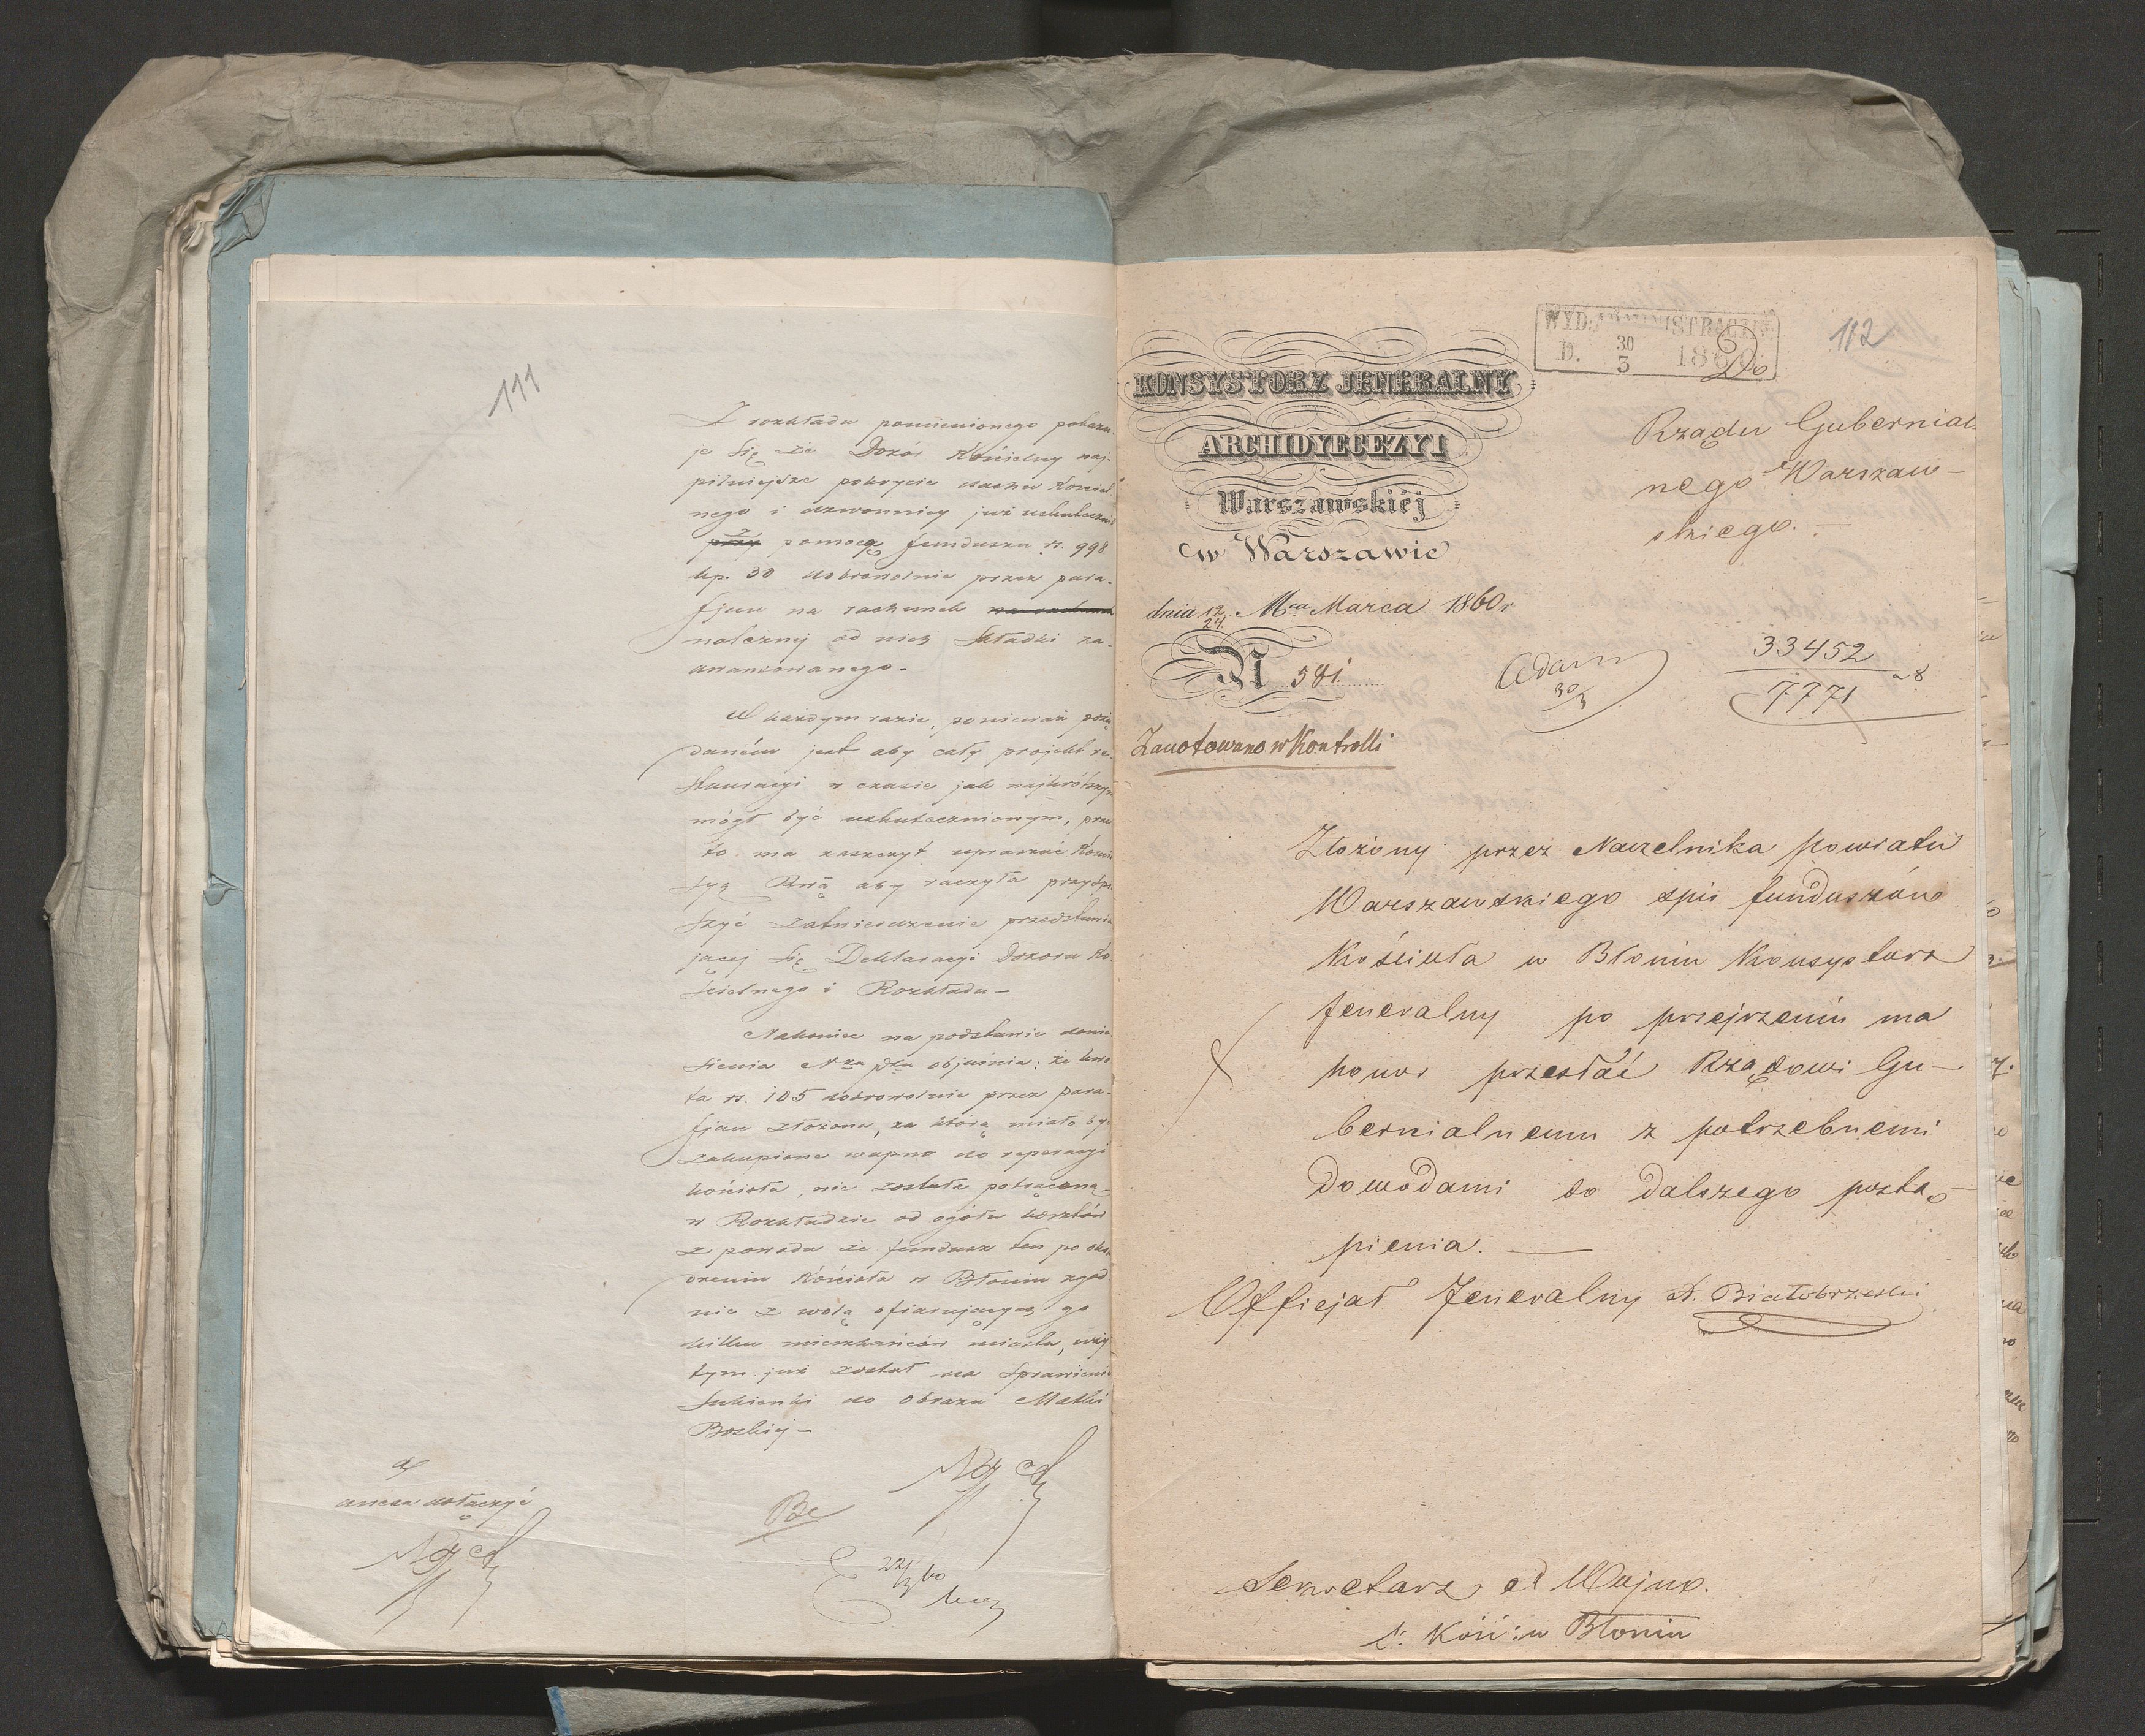 111
Z rozkładu pomienionego pokazu-
je się że Dozór Kościelny naj-
pilniejsze pokrycie dachu Kościel-
nego i dzwonnicy już uskutecznił
przy z pomocą funduszu rs. 998
kp. 30 dobrowolnie przez para-
fjan na rachunek na rachunek
należnej od nich składki za-
awansowanego.
W każdym razie, ponieważ pożą
daném jest aby cały projekt re-
stauracyi w czasie jak najkrótszym
mógł być uskutecznionym, prze
to ma zaszczyt upraszać Komis
syą Rwą aby raczyła przyśpie
szyć zatwierdzenie przedstawia
jącej się Deklaracyi Dozoru Ko
ścielnego i Rozkładu –
Nakoniec na podstawie donie
sienia Nka Ptu objaśnia: że kwo
ta rs. 105 dobrowolnie przez para-
fjan złożona, za którą miało być
zakupione wapno do reperacyi
kościoła, nie została potrąconą
w Rozkładzie od ogółu kosztów
z powodu że fundusz ten po
Kościoła w Błoniu zgod
nie z wolą ofiarujących go
kilku mieszkańców miasta, uży
tym już został na sprawienie
sukienki do obrazu Matki
Bozkiej –
anexa dołączyć
Be
22/3 60
WYD: ADMINISTRACYJNY
D. 30/3 1860
112
KONSYSTORZ JENERALNY
ARCHIDYECEZYI
Warszawskiéj
w Warszawie
dnia 12/24 Mca Marca 1860 r
N 581
Zanotowano w Kontrolli
Do
Rządu Gubernial-
nego Warszaw-
skiego. –
Adam
30/3
33452
7771
8
Złożony przez Naczelnika powiatu
Warszawskiego spis funduszów
Kościoła w Błoniu Konsystorz
Jeneralny po przejrzeniu ma
honor przesłać Rządowi Gu-
bernialnemu z potrzebnemi
dowodami do dalszego postą-
pienia. –
Officjał Jeneralny A. Białobrzeski
Sekretarz
s: Kość: w Błoniu